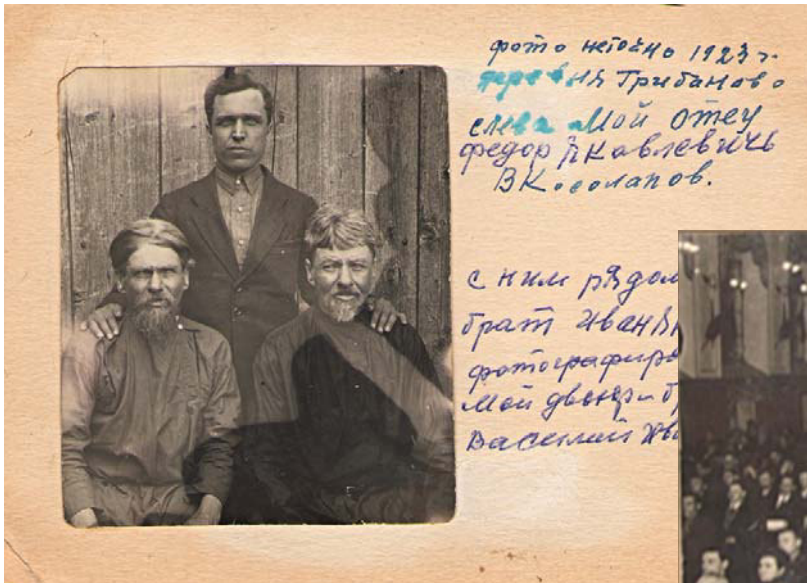 фото неточно 1923 г.
деревня Грибаново
слева Мой отец
Федор Яковлевичь
В Косолапов.
с ним рядом
брат Иван
фотографиро
Мой двоюр
Василий Ив